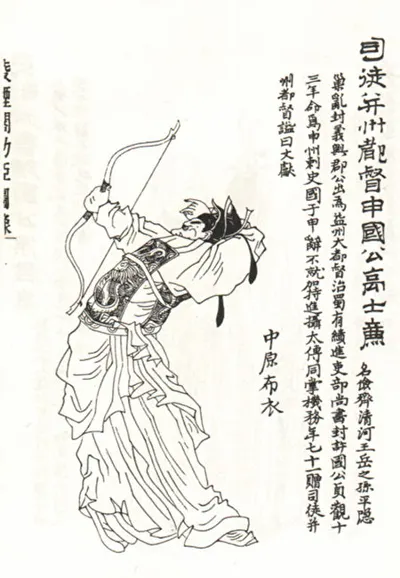 司徒并州都督申國公高士廉
名儉齊清河王岳之孫平隐
巢亂封義興郡公出為益州大都督治蜀有績進吏部尚書封許國公貞觀十
三年命為申州刺史國于甲辭不就加特進攝太傅同掌機務年七十一贈司徒并
州都督謚曰文獻
中原布衣
凌煙閣功臣圖像